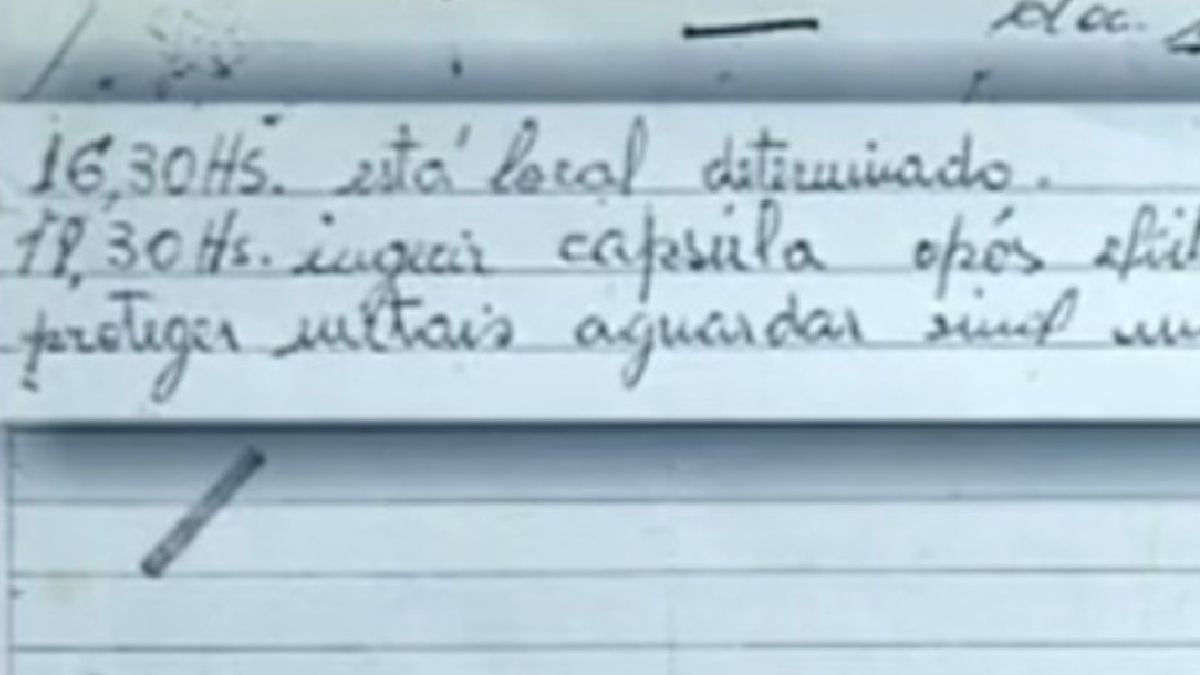 16,30 Hs. está local determinado.
18,30 Hs. ingerir capsúla após
proteger metais aguardar sinal